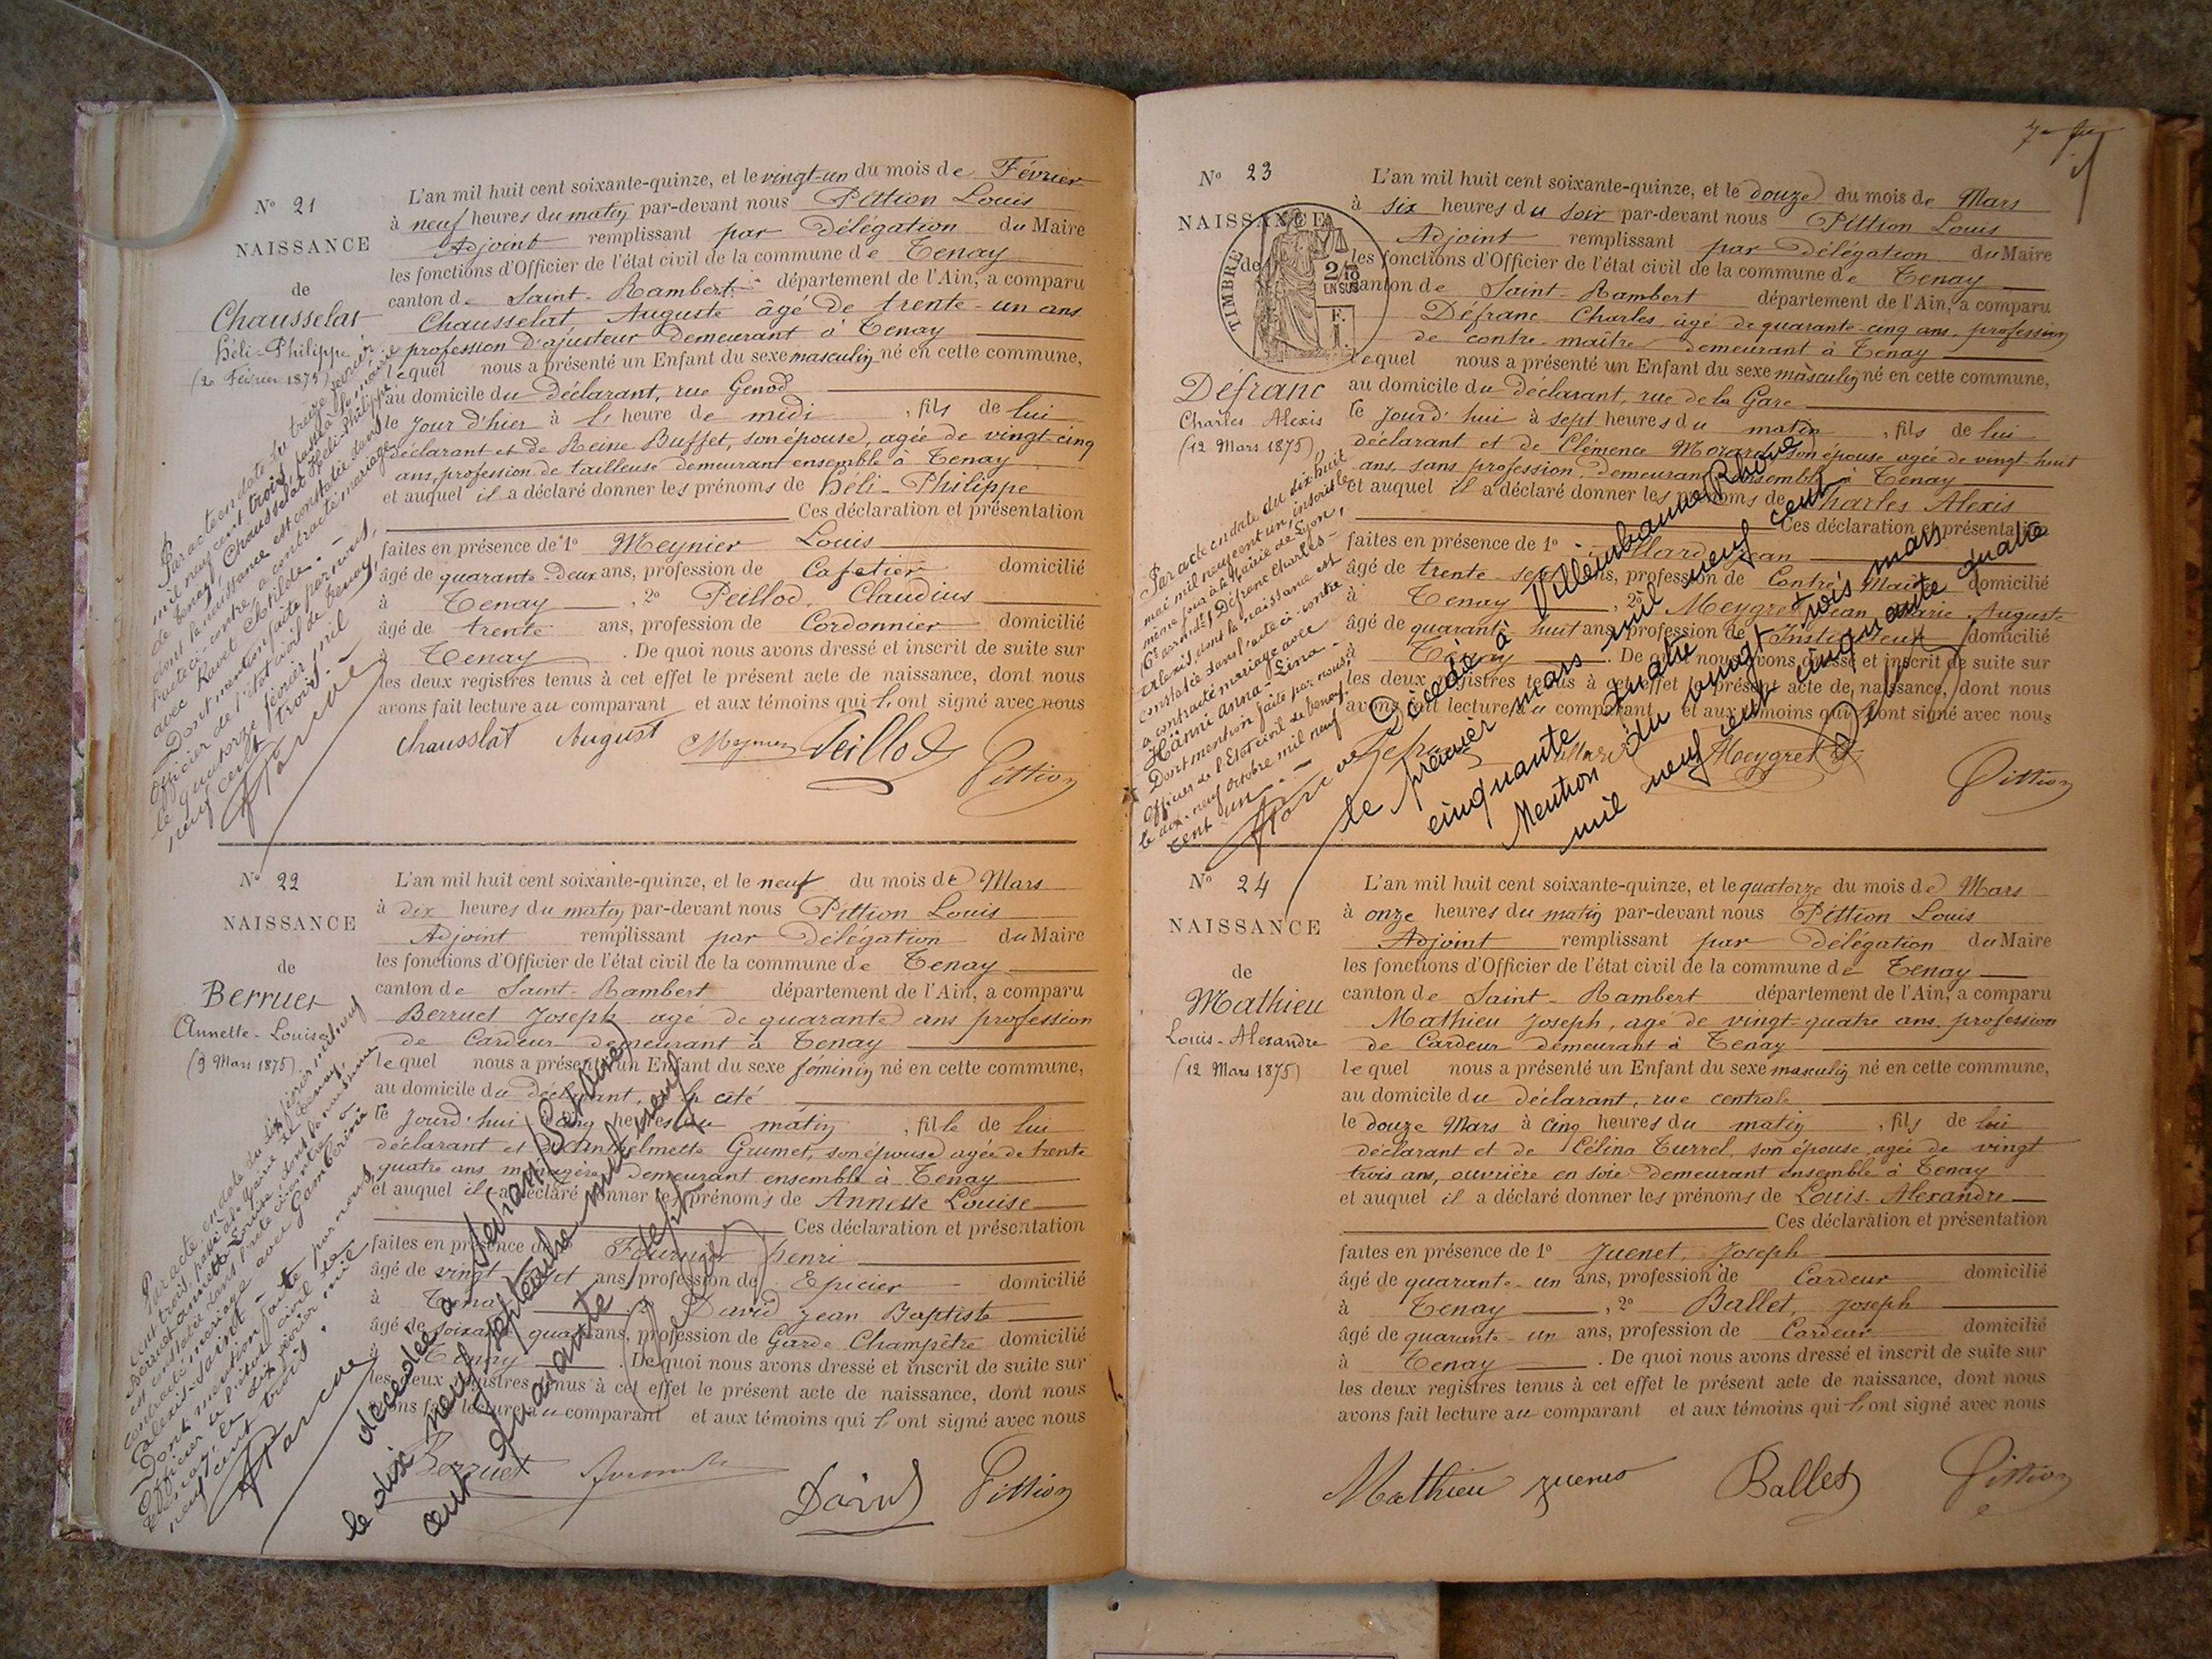 N° 21
NAISSANCE
de
Chausselat
Héli-Philippe
(20 Février 1875)
L'an mil huit cent soixante-quinze, et le vingt-un du mois de Février
à neuf heures du matin par-devant nous Pittion Louis
Adjoint remplissant par Délégation du Maire
les fonctions d'Officier de l'état civil de la commune de Tenay
canton de Saint-Rambert département de l'Ain, a comparu
Chausselat, Auguste âgé de trente-un ans
profession d'ajusteur demeurant à Tenay
lequel nous a présenté un Enfant du sexe masculin né en cette commune,
au domicile du Déclarant, rue Genod
le jour d'hier à l' heure de midi, fils de lui
déclarant et de Reine Buffet, son épouse, agée de vingt-cinq
ans, profession de tailleuse demeurant ensemble à Tenay
et auquel il a déclaré donner les prénoms de Héli-Philippe
Ces déclaration et présentation
faites en présence de 1° Meynier Louis
âgé de quarante-Deux ans, profession de Cafetier domicilié
à Tenay, 2° Peillod, Claudius
âgé de trente ans, profession de Cordonnier domicilié
à Tenay. De quoi nous avons dressé et inscrit de suite sur
les deux registres tenus à cet effet le présent acte de naissance, dont nous
avons fait lecture au comparant et aux témoins qui l'ont signé avec nous
Chausslat August Meynier Peillod
Pittion
Par acte en date du treize février
mil neuf cent trois, passé à la mairie
de Tenay, Chausselat Héli-Philippe
dont la naissance est constatée dans
l'acte ci-contre, a contracté mariage
avec Ravet Clotilde
Dont mention faite par nous,
Officier de l'état civil de Tenay,
le quatorze février mil
neuf cent trois
N° 22
NAISSANCE
de
Berruet
Annette-Louise
(9 Mars 1875)
L'an mil huit cent soixante-quinze, et le neuf du mois de Mars
à dix heures du matin par-devant nous Pittion Louis
Adjoint remplissant par Délégation du Maire
les fonctions d'Officier de l'état civil de la commune de Tenay
canton de Saint-Rambert département de l'Ain, a comparu
Berruet Joseph agé de quarante ans profession
de Cardeur demeurant à Tenay
lequel nous a présenté un Enfant du sexe féminin né en cette commune,
au domicile du Déclarant, la cité
le Jourd'hui à cinq heures du matin, fille de lui
déclarant et Anthelmette Grumet, son épouse agée de trente
quatre ans ménagère demeurant ensemble à Tenay
et auquel il a déclaré donner les prénoms de Annette Louise
Ces déclaration et présentation
faites en présence de 1° Fournier Henri
âgé de vingt-sept ans, profession de Epicier domicilié
à Tenay, 2° David Jean Baptiste
âgé de soixante quatre ans, profession de Garde Champêtre domicilié
à Tenay. De quoi nous avons dressé et inscrit de suite sur
les deux registres tenus à cet effet le présent acte de naissance, dont nous
avons fait lecture au comparant et aux témoins qui l'ont signé avec nous
Berruet
David Pittion
Par acte en date du dix février mil neuf
cent trois, passé à la Mairie de Tenay,
Berruet Annette-Louise, dont la naissance
est constatée dans l'acte ci-contre a
contracté mariage avec Gambérini
Alexis-Saint
Dont mention faite par nous,
Officier de l'état civil de
Tenay, le dix février mil
neuf cent trois.
décédée à
le dix neuf septembre mille neuf
cent quarante sept
N° 23
NAISSANCE
de
TIMBRE
2/10
EN SUS
F. I.
Défranc
Charles Alexis
(12 Mars 1875)
L'an mil huit cent soixante-quinze, et le douze du mois de Mars
à six heures du soir par-devant nous Pittion Louis
Adjoint remplissant par Délégation du Maire
les fonctions d'Officier de l'état civil de la commune de Tenay
canton de Saint-Rambert département de l'Ain, a comparu
Défranc Charles, âgé de quarante-cinq ans, profession
de contre-maître demeurant à Tenay
lequel nous a présenté un Enfant du sexe masculin né en cette commune,
au domicile du Déclarant, rue de la Gare
le Jourd'hui à sept heures du matin, fils de lui
déclarant et de Clémence Morard, son épouse agée de vingt-huit
ans, sans profession, demeurant ensemble à Tenay
et auquel il a déclaré donner les prénoms de Charles Alexis
Ces déclaration et présentation
faites en présence de 1° Allard Jean
âgé de trente-sept ans, profession de Contre Maître domicilié
à Tenay, 2° Meygret Jean Marie Auguste
âgé de quarante-huit ans, profession de Instituteur domicilié
à Tenay. De quoi nous avons dressé et inscrit de suite sur
les deux registres tenus à cet effet le présent acte de naissance, dont nous
avons fait lecture au comparant et aux témoins qui l'ont signé avec nous
Allard Meygret
Pittion
Par acte en date du dix huit
mai mil neuf cent un, inscrit le
même jour à la Mairie de Lyon,
6e arrondt, Défranc Charles-
Alexis, dont la naissance est
constatée dans l'acte ci-contre
a contracté mariage avec
Hänni Anna Lina.
Dont mention faite par nous,
Officier de l'Etat civil de Tenay,
le dix-neuf octobre mil neuf
cent un
Décédé à Villeurbanne Rhône
le premier mars mil neuf cent
cinquante quatre
Mention du vingt trois mars
mil neuf cent cinquante quatre
N° 24
NAISSANCE
de
Mathieu
Louis-Alexandre
(12 Mars 1875)
L'an mil huit cent soixante-quinze, et le quatorze du mois de Mars
à onze heures du matin par-devant nous Pittion Louis
Adjoint remplissant par Délégation du Maire
les fonctions d'Officier de l'état civil de la commune de Tenay
canton de Saint-Rambert département de l'Ain, a comparu
Mathieu Joseph, agé de vingt-quatre ans, profession
de Cardeur demeurant à Tenay
lequel nous a présenté un Enfant du sexe masculin né en cette commune,
au domicile du déclarant, rue centrale
le douze Mars à cinq heures du matin, fils de lui
déclarant et de Célina Turrel, son épouse, agée de vingt
trois ans, ouvrière en soie demeurant ensemble à Tenay
et auquel il a déclaré donner les prénoms de Louis-Alexandre
Ces déclaration et présentation
faites en présence de 1° Juenet, Joseph
âgé de quarante-un ans, profession de Cardeur domicilié
à Tenay, 2° Ballet, Joseph
âgé de quarante-un ans, profession de Cardeur domicilié
à Tenay. De quoi nous avons dressé et inscrit de suite sur
les deux registres tenus à cet effet le présent acte de naissance, dont nous
avons fait lecture au comparant et aux témoins qui l'ont signé avec nous
Mathieu Juenet Ballet Pittion